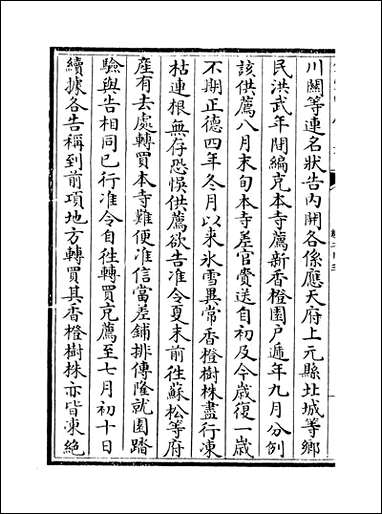 川關等連名狀告内開各係應天府上元縣北城等鄉
民洪武年間編充本寺薦新香橙園戶遞年九月分例
該供薦八月末旬本寺差官賫送自初及今歲復一歲
不期正德四年冬月以来氷雪異常香橙樹株盡行凍
枯連根無存恐悮供薦欲告准令夏末前徃蘇松等府
産有去處轉買本寺難便准信當差鋪排傳隆就園踏
驗與告相同已行准令自徃轉買充薦至七月初十日
續據各告稱到前項地方轉買其香橙樹株亦皆凍絶